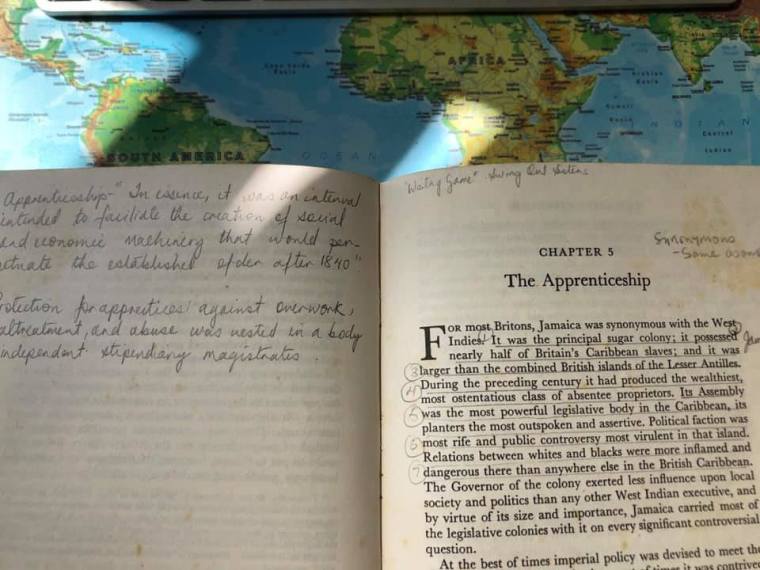 SOUTH AMERICA
AFRICA
Apprenticeship-" In essence, it was an interval
intended to faciliate the creation of social
and economic machinery that would per-
etuate the established order after 1840"
Protection for apprentices against overwork,
altreatment, and abuse was vested in a body
independent stipendiary magistrates.
"Waiting Game" Swing Out Sisters
Synonymous
-Same as
CHAPTER 5
The Apprenticeship
FOR most Britons, Jamaica was synonymous with the West
Indies. It was the principal sugar colony; it possessed
nearly half of Britain's Caribbean slaves; and it was
3 larger than the combined British islands of the Lesser Antilles.
4 During the preceding century it had produced the wealthiest,
most ostentatious class of absentee proprietors. Its Assembly
5 was the most powerful legislative body in the Caribbean, its
planters the most outspoken and assertive. Political faction was
6 most rife and public controversy most virulent in that island.
Relations between whites and blacks were more inflamed and
7 dangerous there than anywhere else in the British Caribbean.
The Governor of the colony exerted less influence upon local
society and politics than any other West Indian executive, and
by virtue of its size and importance, Jamaica carried most of
the legislative colonies with it on every significant controversial
question.
At the best of times imperial policy was devised to meet the
of times it was contrived